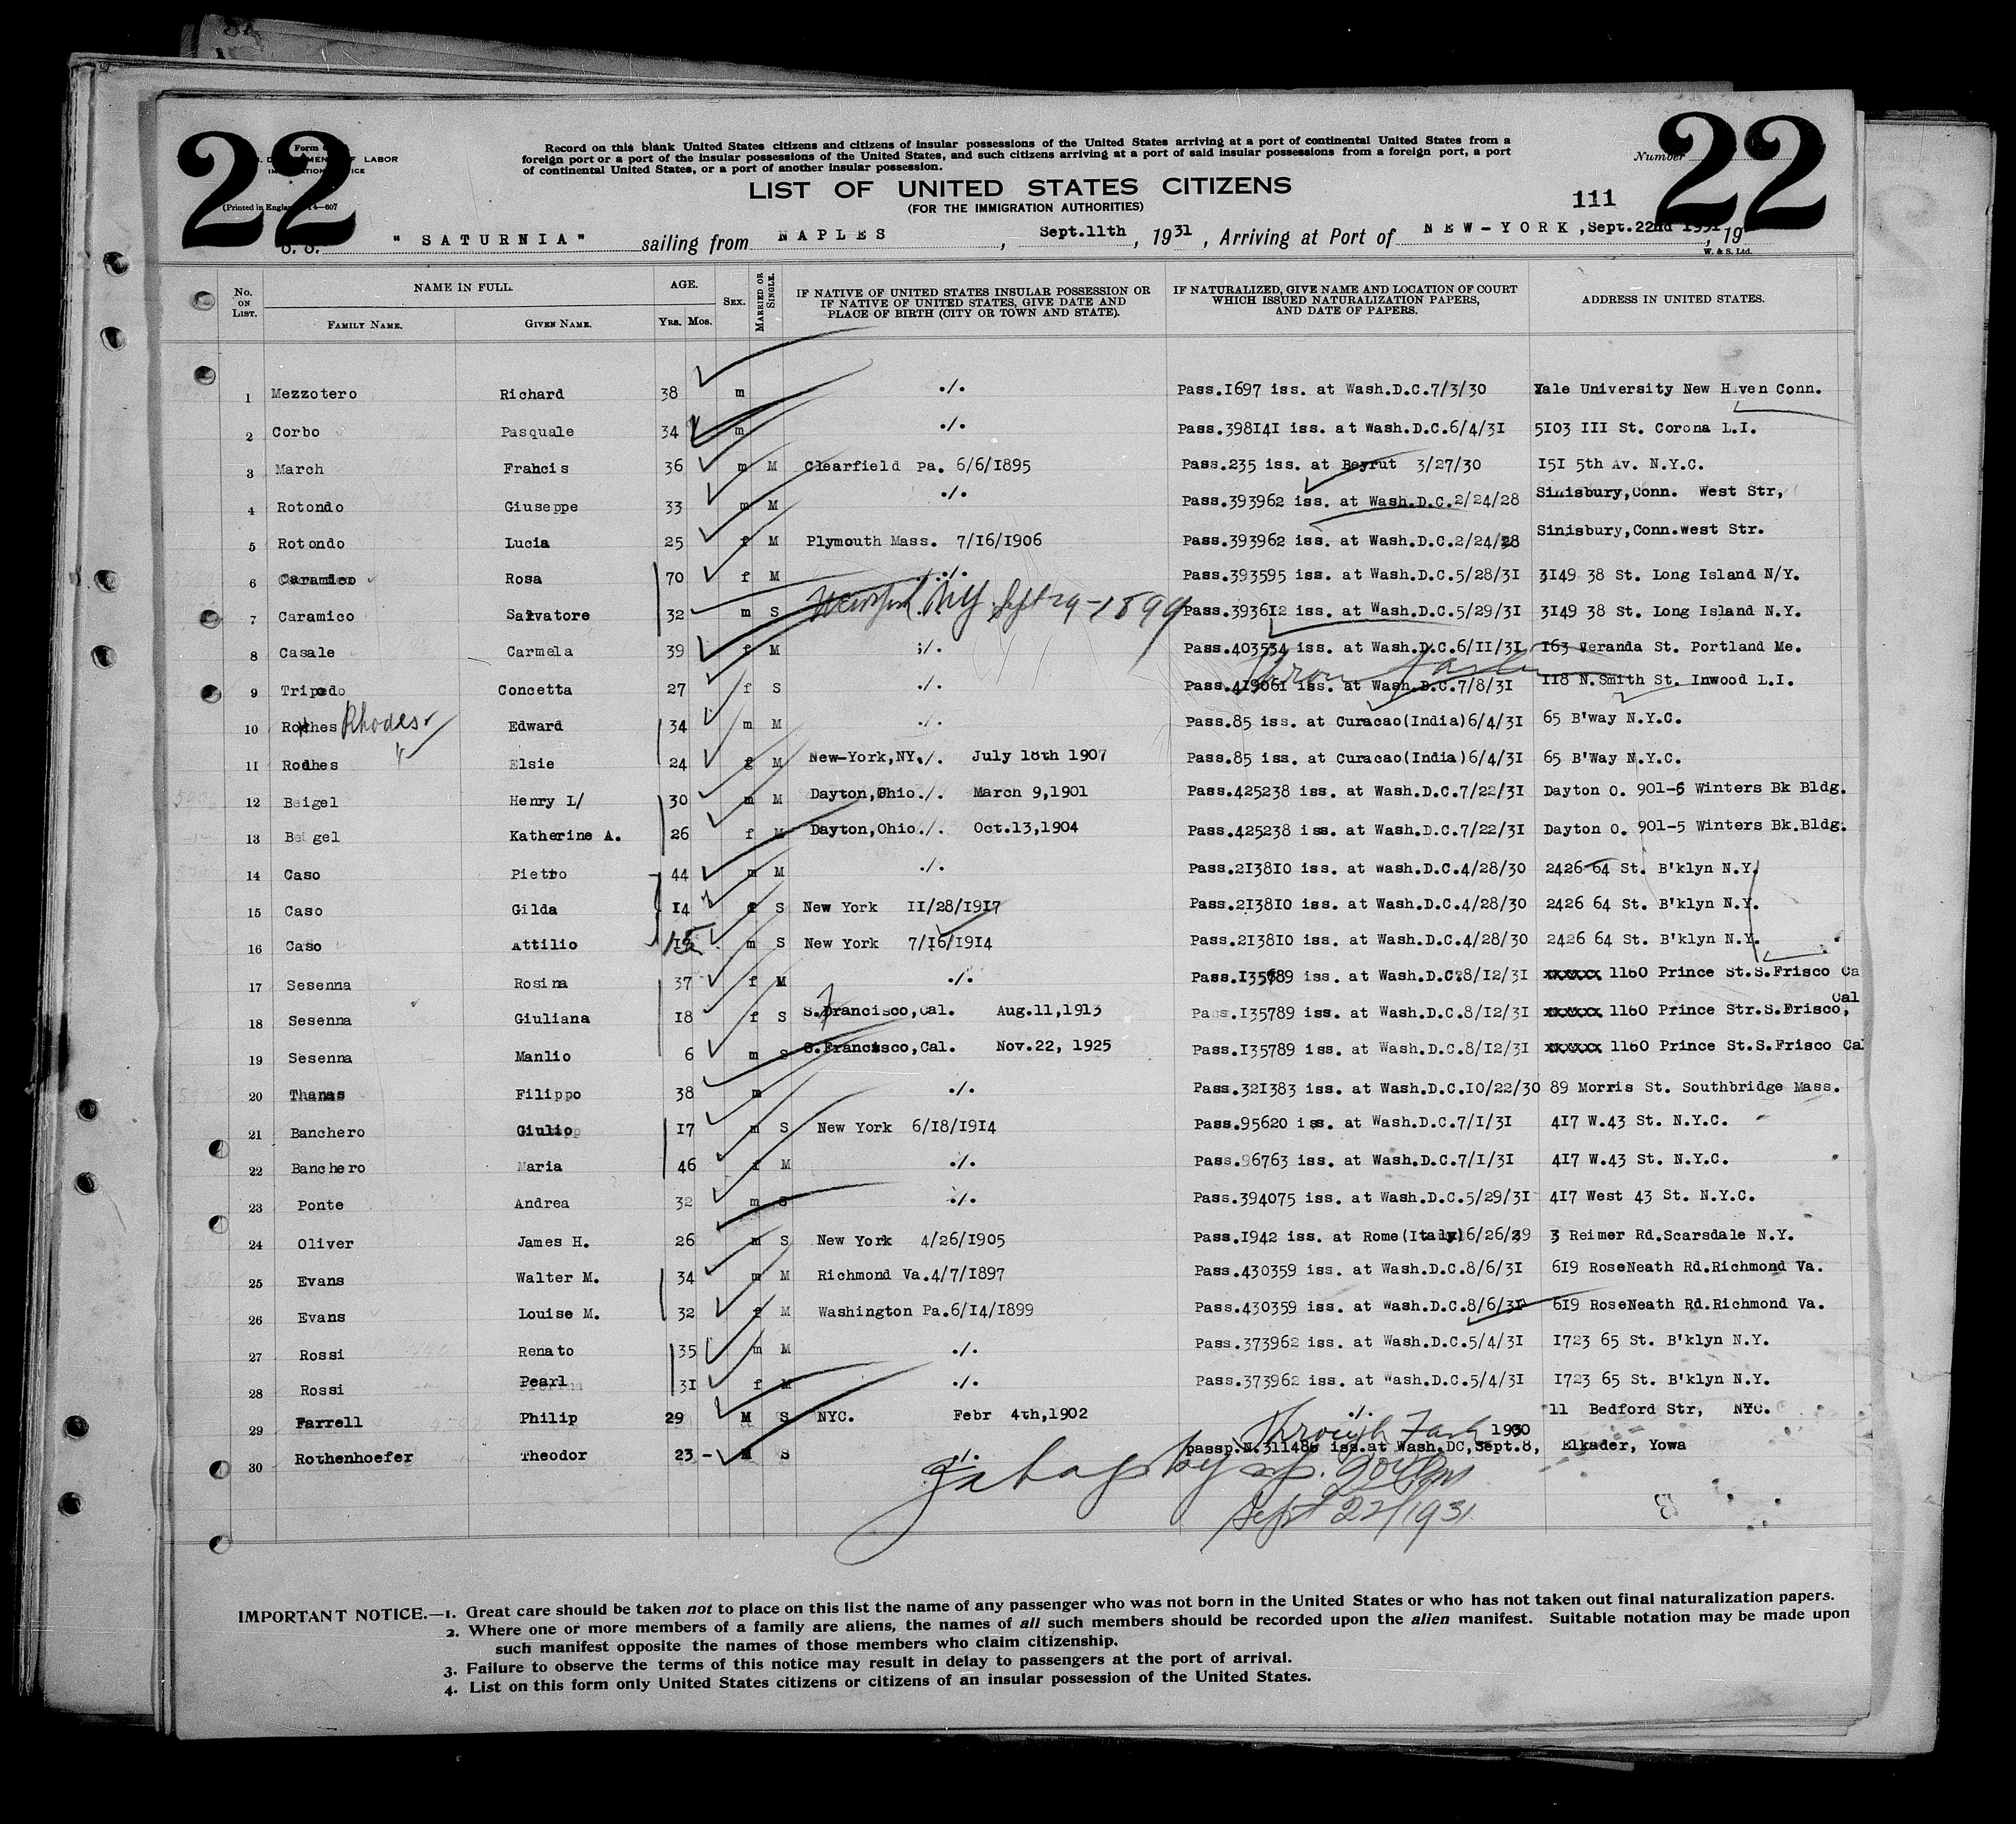 22
22
Form
LABOR
(Printed in England) 14—607
Record on this blank United States citizens and citizens of insular possessions of the United States arriving at a port of continental United States from a
foreign port or a port of the insular possessions of the United States, and such citizens arriving at a port of said insular possessions from a foreign port, a port
of continental United States, or a port of another insular possession.
Number
LIST OF UNITED STATES CITIZENS
(FOR THE IMMIGRATION AUTHORITIES)
111
S. S. " SATURNIA " sailing from NAPLES, Sept.11th, 1931, Arriving at Port of NEW-YORK, Sept.22nd 1931, 19
W. & S. Ltd.
No. ON LIST. NAME IN FULL. AGE. SEX. MARRIED OR SINGLE. IF NATIVE OF UNITED STATES INSULAR POSSESSION OR IF NATIVE OF UNITED STATES, GIVE DATE AND PLACE OF BIRTH (CITY OR TOWN AND STATE). IF NATURALIZED, GIVE NAME AND LOCATION OF COURT WHICH ISSUED NATURALIZATION PAPERS, AND DATE OF PAPERS. ADDRESS IN UNITED STATES.
FAMILY NAME. GIVEN NAME. YRS. MOS.
1 Mezzotero Richard 38 m ./. Pass.1697 iss. at Wash.D.C.7/3/30 Yale University New Haven Conn.
2 Corbo Pasquale 34 m ./. Pass.398141 iss. at Wash.D.C.6/4/31 5103 111 St. Corona L.I.
3 March Francis 36 m M Clearfield Pa. 6/6/1895 Pass.235 iss. at Beyrut 3/27/30 151 5th Av. N.Y.C.
4 Rotondo Giuseppe 33 m M ./. Pass.393962 iss. at Wash.D.C.2/24/28 Sinisbury,Conn. West Str,
5 Rotondo Lucia 25 f M Plymouth Mass. 7/16/1906 Pass.393962 iss. at Wash.D.C.2/24/28 Sinisbury,Conn.west Str.
6 Caramico Rosa 70 f M ./. Pass.393595 iss. at Wash.D.C.5/28/31 3149 38 St. Long Island N/Y.
7 Caramico Salvatore 32 m S N.Y. Sept 29-1899 Pass.393612 iss. at Wash.D.C.5/29/31 3149 38 St. Long Island N.Y.
8 Casale Carmela 39 f M ;/. Pass.403534 iss. at Wash.D.C.6/11/31 163 Veranda St. Portland Me.
9 Tripodo Concetta 27 f S ./. Pass.419061 iss. at Wash.D.C.7/8/31 118 N.Smith St. Inwood L.I.
10 Rodhes Rhodes Edward 34 m M ./. Pass.85 iss. at Curacao(India)6/4/31 65 B'way N.Y.C.
11 Rodhes Elsie 24 f M New-York,NY./. July 18th 1907 Pass.85 iss. at Curacao(India)6/4/31 65 B'Way N.Y.C.
12 Beigel Henry L/ 30 m M Dayton,Ohio./. March 9,1901 Pass.425238 iss. at Wash.D.C.7/22/31 Dayton O. 901-5 Winters Bk Bldg.
13 Beigel Katherine A. 26 f M Dayton,Ohio./. Oct.13,1904 Pass.425238 iss. at Wash.D.C.7/22/31 Dayton O. 901-5 Winters Bk.Bldg.
14 Caso Pietro 44 m M ./. Pass.213810 iss. at Wash.D.C.4/28/30 2426 64 St. B'klyn N.Y.
15 Caso Gilda 14 f S New York 11/28/1917 Pass.213810 iss. at Wash.D.C.4/28/30 2426 64 St. B'klyn N.Y.
16 Caso Attilio 15 m S New York 7/16/1914 Pass.213810 iss. at Wash.D.C.4/28/30 2426 64 St. B'klyn N.Y.
17 Sesenna Rosina 37 f M ./. Pass.135789 iss. at Wash.D.C.8/12/31 xxxxxx 1160 Prince St.S.Frisco Ca
18 Sesenna Giuliana 18 f S S.Francisco,Cal. Aug.11,1913 Pass.135789 iss. at Wash.D.C.8/12/31 xxxxxx 1160 Prince Str.S.Frisco, Cal
19 Sesenna Manlio 6 m S S.Francisco,Cal. Nov.22, 1925 Pass.135789 iss. at Wash.D.C.8/12/31 xxxxxx 1160 Prince St.S.Frisco Cal
20 Thanas Filippo 38 m ./. Pass.321383 iss. at Wash.D.C.10/22/30 89 Morris St. Southbridge Mass.
21 Banchero Giulio 17 m S New York 6/18/1914 Pass.95620 iss. at Wash.D.C.7/1/31 417 W.43 St. N.Y.C.
22 Banchero Maria 46 f M ./. Pass.96763 iss. at Wash.D.C.7/1/31 417 W.43 St. N.Y.C.
23 Ponte Andrea 32 m S ./. Pass.394075 iss. at Wash.D.C.5/29/31 417 West 43 St. N.Y.C.
24 Oliver James H. 26 m S New York 4/26/1905 Pass.1942 iss. at Rome(Italy)6/26/29 3 Reimer Rd.Scarsdale N.Y.
25 Evans Walter M. 34 m M Richmond Va.4/7/1897 Pass.430359 iss. at Wash.D.C.8/6/31 619 RoseNeath Rd.Richmond Va.
26 Evans Louise M. 32 f M Washington Pa.6/14/1899 Pass.430359 iss. at Wash.D.C.8/6/31 619 RoseNeath Rd.Richmond Va.
27 Rossi Renato 35 m M ./. Pass.373962 iss. at Wash.D.C.5/4/31 1723 65 St. B'klyn N.Y.
28 Rossi Pearl 31 f M ./. Pass.373962 iss. at Wash.D.C.5/4/31 1723 65 St. B'klyn N.Y.
29 Farrell Philip 29 M S NYC. Febr 4th,1902 ./. 11 Bedford Str, NYC.
30 Rothenhoefer Theodor 23 - M S ./. passp.N.311486 iss.at Wash.DC,Sept.8, 1930 Elkader, Yowa
Sept 22/1931
IMPORTANT NOTICE.—1. Great care should be taken not to place on this list the name of any passenger who was not born in the United States or who has not taken out final naturalization papers.
2. Where one or more members of a family are aliens, the names of all such members should be recorded upon the alien manifest. Suitable notation may be made upon
such manifest opposite the names of those members who claim citizenship.
3. Failure to observe the terms of this notice may result in delay to passengers at the port of arrival.
4. List on this form only United States citizens or citizens of an insular possession of the United States.